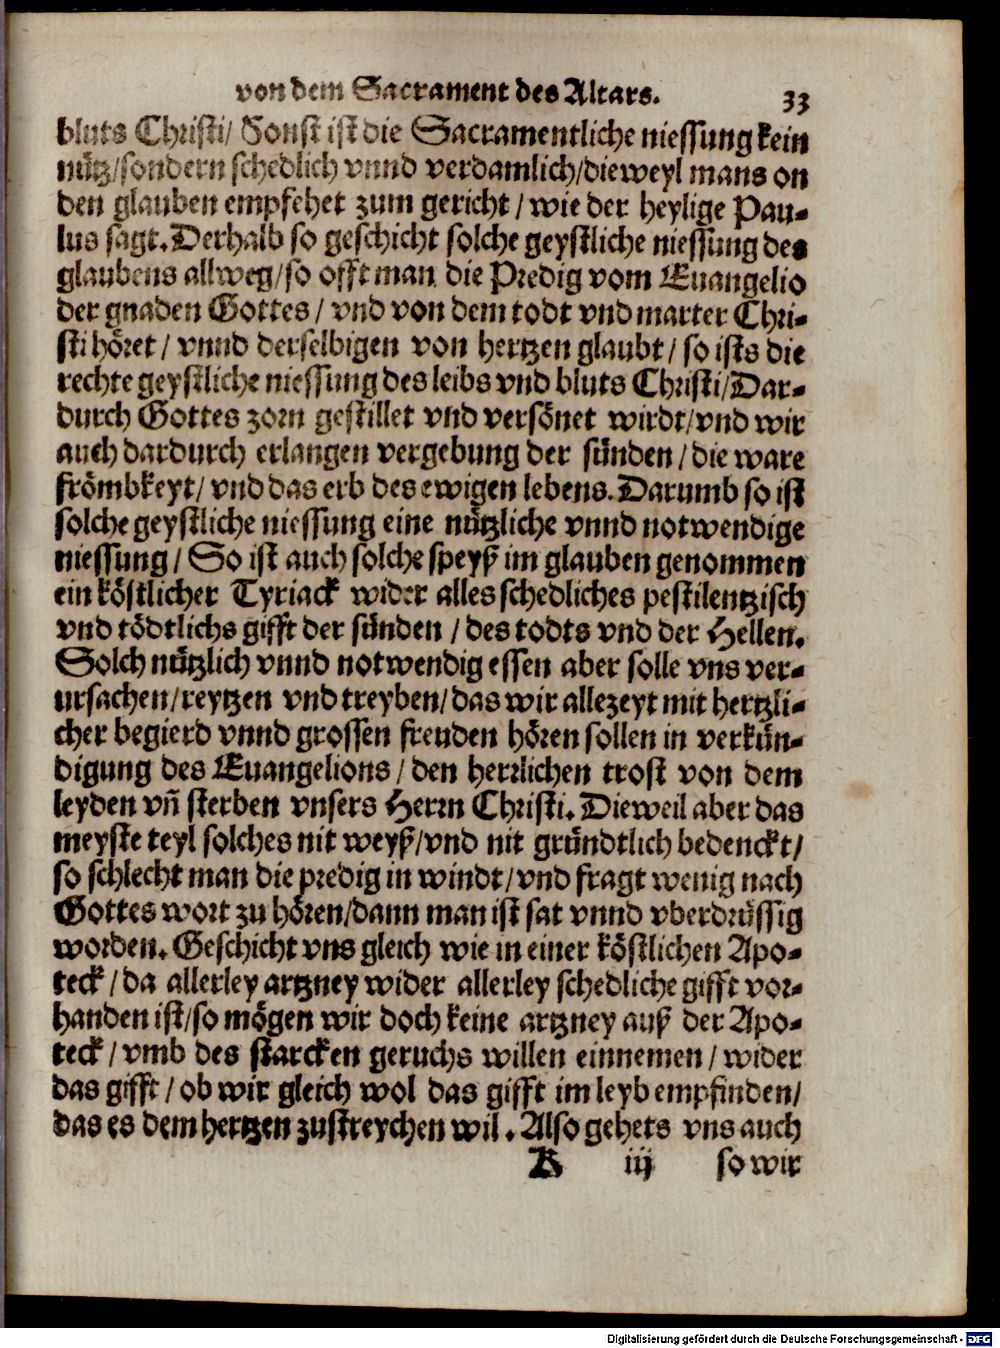 von dem Sacrament des Altars. 33
bluts Christi/ Sonst ist die Sacramentliche niessung kein
nütz/sondern schedlich vnnd verdamlich/dieweyl mans on
den glauben empfehet zum gericht / wie der heylige Pau-
lus sagt. Derhalb so geschicht solche geystliche niessung des
glaubens allweg/so offt man die Predig vom Euangelio
der gnaden Gottes / vnd von dem todt vnd marter Chri-
sti höret / vnnd derselbigen von hertzen glaubt / so ists die
rechte geystliche niessung des leibs vnd bluts Christi/Dar-
durch Gottes zorn gestillet vnd versönet wirdt/vnd wir
auch dardurch erlangen vergebung der sünden / die ware
frömbkeyt/ vnd das erb des ewigen lebens. Darumb so ist
solche geystliche niessung eine nützliche vnnd notwendige
niessung / So ist auch solche speyß im glauben genommen
ein köstlicher Tyriack wider alles schedliches pestilentzisch
vnd tödtlichs gifft der sünden / des todts vnd der Hellen.
Solch nützlich vnnd notwendig essen aber solle vns ver-
ursachen/reytzen vnd treyben/das wir allezeyt mit hertzli-
cher begierd vnnd grossen freuden hören sollen in verkün-
digung des Euangelions / den herrlichen trost von dem
leyden vñ sterben vnsers Herrn Christi. Dieweil aber das
meyste teyl solches nit weyß/vnd nit gründtlich bedenckt/
so schlecht man die predig in windt/vnd fragt wenig nach
Gottes wort zu hören/dann man ist sat vnnd vberdrüssig
worden. Geschicht vns gleich wie in einer köstlichen Apo-
teck / da allerley artzney wider allerley schedliche gifft vor-
handen ist/so mögen wir doch keine artzney auß der Apo-
teck / vmb des starcken geruchs willen einnemen / wider
das gifft / ob wir gleich wol das gifft im leyb empfinden/
das es dem hertzen zustreychen wil. Also gehets vns auch
K iij so wir
Digitalisierung gefördert durch die Deutsche Forschungsgemeinschaft - DFG